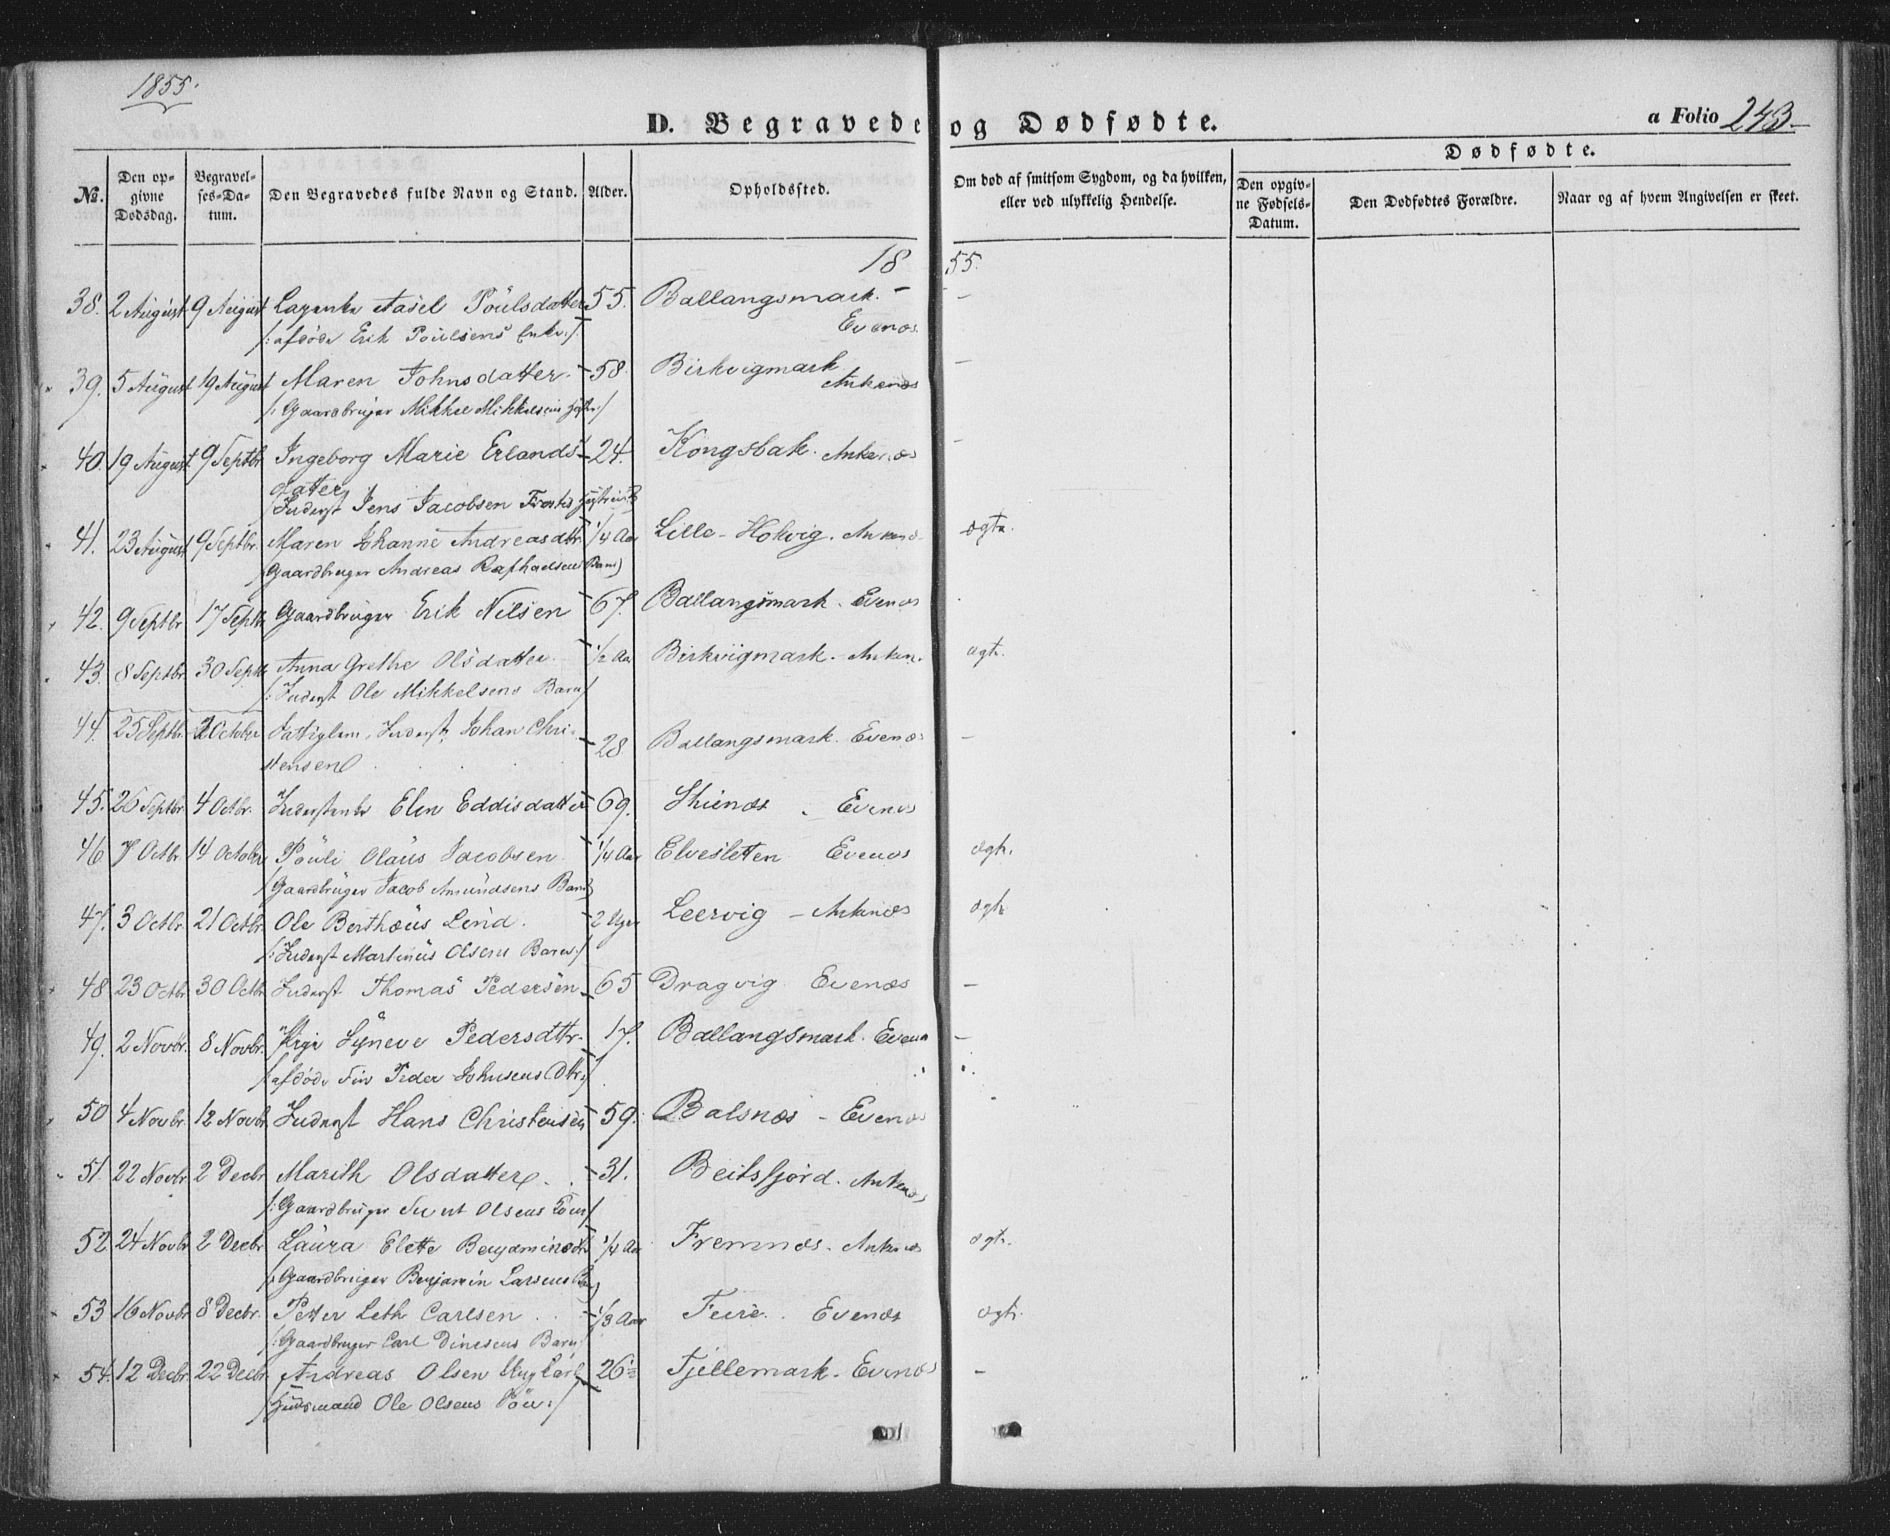 1855.
D. Begravede og Dødfødte.
a Folio 243.
Dødfødte.
No.
Den opgivne Dødsdag.
Begravelses-Datum.
Den Begravedes fulde Navn og Stand.
Alder.
Opholdssted.
Om død af smitsom Sygdom, og da hvilken, eller ved ulykkelig Hendelse.
Den opgivne Fødsels-Datum.
Den Dødfødtes Forældre.
Naar og af hvem Angivelsen er skeet.
1855.
38. 2 August 9 August Asiel Poulsdatter 55. Ballangsmark. - Evenæs -
/: afdøde Erik Poulsens Enke :/
39. 5 August 19 August Maren Johnsdatter - 58. Birkvigmark Ankenæs -
/: Gaardbruger Mikkel Mikkelsens Hustr :/
40. 19 August 9 Septbr. Ingeborg Marie Erlands- 24. Kongsbak. Ankenæs -
datter
/ Inderst Jens Jacobsen
41. 23 August 9 Septbr. Maren Johanne Andreasdtr. 1/4 Aar Lille-Holvig. Ankenæs ægte.
(Gaardbruger Andreas Raphaelsens Barn)
42. 9 Septbr. 17 Septbr Gaardbruger Erik Nilsen 67. Ballangsmark. Evenæs
43. 8 Septbr. 30 Septbr Anna Grethe Olsdatter. 1/2 Aar Birkviigmark. Anken. ægte.
/: Inderst Ole Mikkelsens Barn /
44. 25 Septbr. 2 October Fattiglem, Inderst Johan Chri- 28 Ballangsmark. Evenæs -
stensen
45. 26 Septbr. 4 Octbr. Elen Eddisdatter 69. Skienæs - Evenæs
46 7 Octbr. 14 October Pouli Olaus Jacobsen 1/4 Aar Elvesletten Evenæs ægte.
/ Gaardbruger Jacob Amundsens Barn /
47. 3 Octbr. 21 Octbr. Ole Berthæus Lind. 2 Uger Leervig - Ankenæs ægte
/: Inderst Martinus Olsens Barn :/
48 23 Octbr. 30 Octbr Inderst Thomas Pedersen 65 Dragvig Evenæs -
49. 2 Novbr. 8 Novbr. Pige Syneve Pedersdttr. 17. Ballangsmark. Evenæs -
/: afdøde Fin Peder Johnsens Dtr /
50 4 Novbr. 12 Novbr Inderst Hans Christensen 59. Balsnæs - Evenæs
51. 22 Novbr. 2 Decbr. Marith Olsdatter. 31. Beitsfjord. Ankenæs
/: Gaardbruger Olsens /
52 24 Novbr 2 Decbr Laura Elette Benjaminsdtr 1/4 Aar Fremnæs. Ankenæs ægte.
/: Gaardbruger Benjamin Larsens Barn /
53 16 Novbr 8 Decbr. Petter Leth Carlsen 1/3 Aar Feire. Evenæs ægte.
/: Gaardbruger Carl Dinesens Barn /
54. 12 Decbr. 22 Decbr. Andreas Olsen Ungkarl 26 1/2 Tjellemark. Evenæs -
/: Huusmand Ole Olsens Søn :/